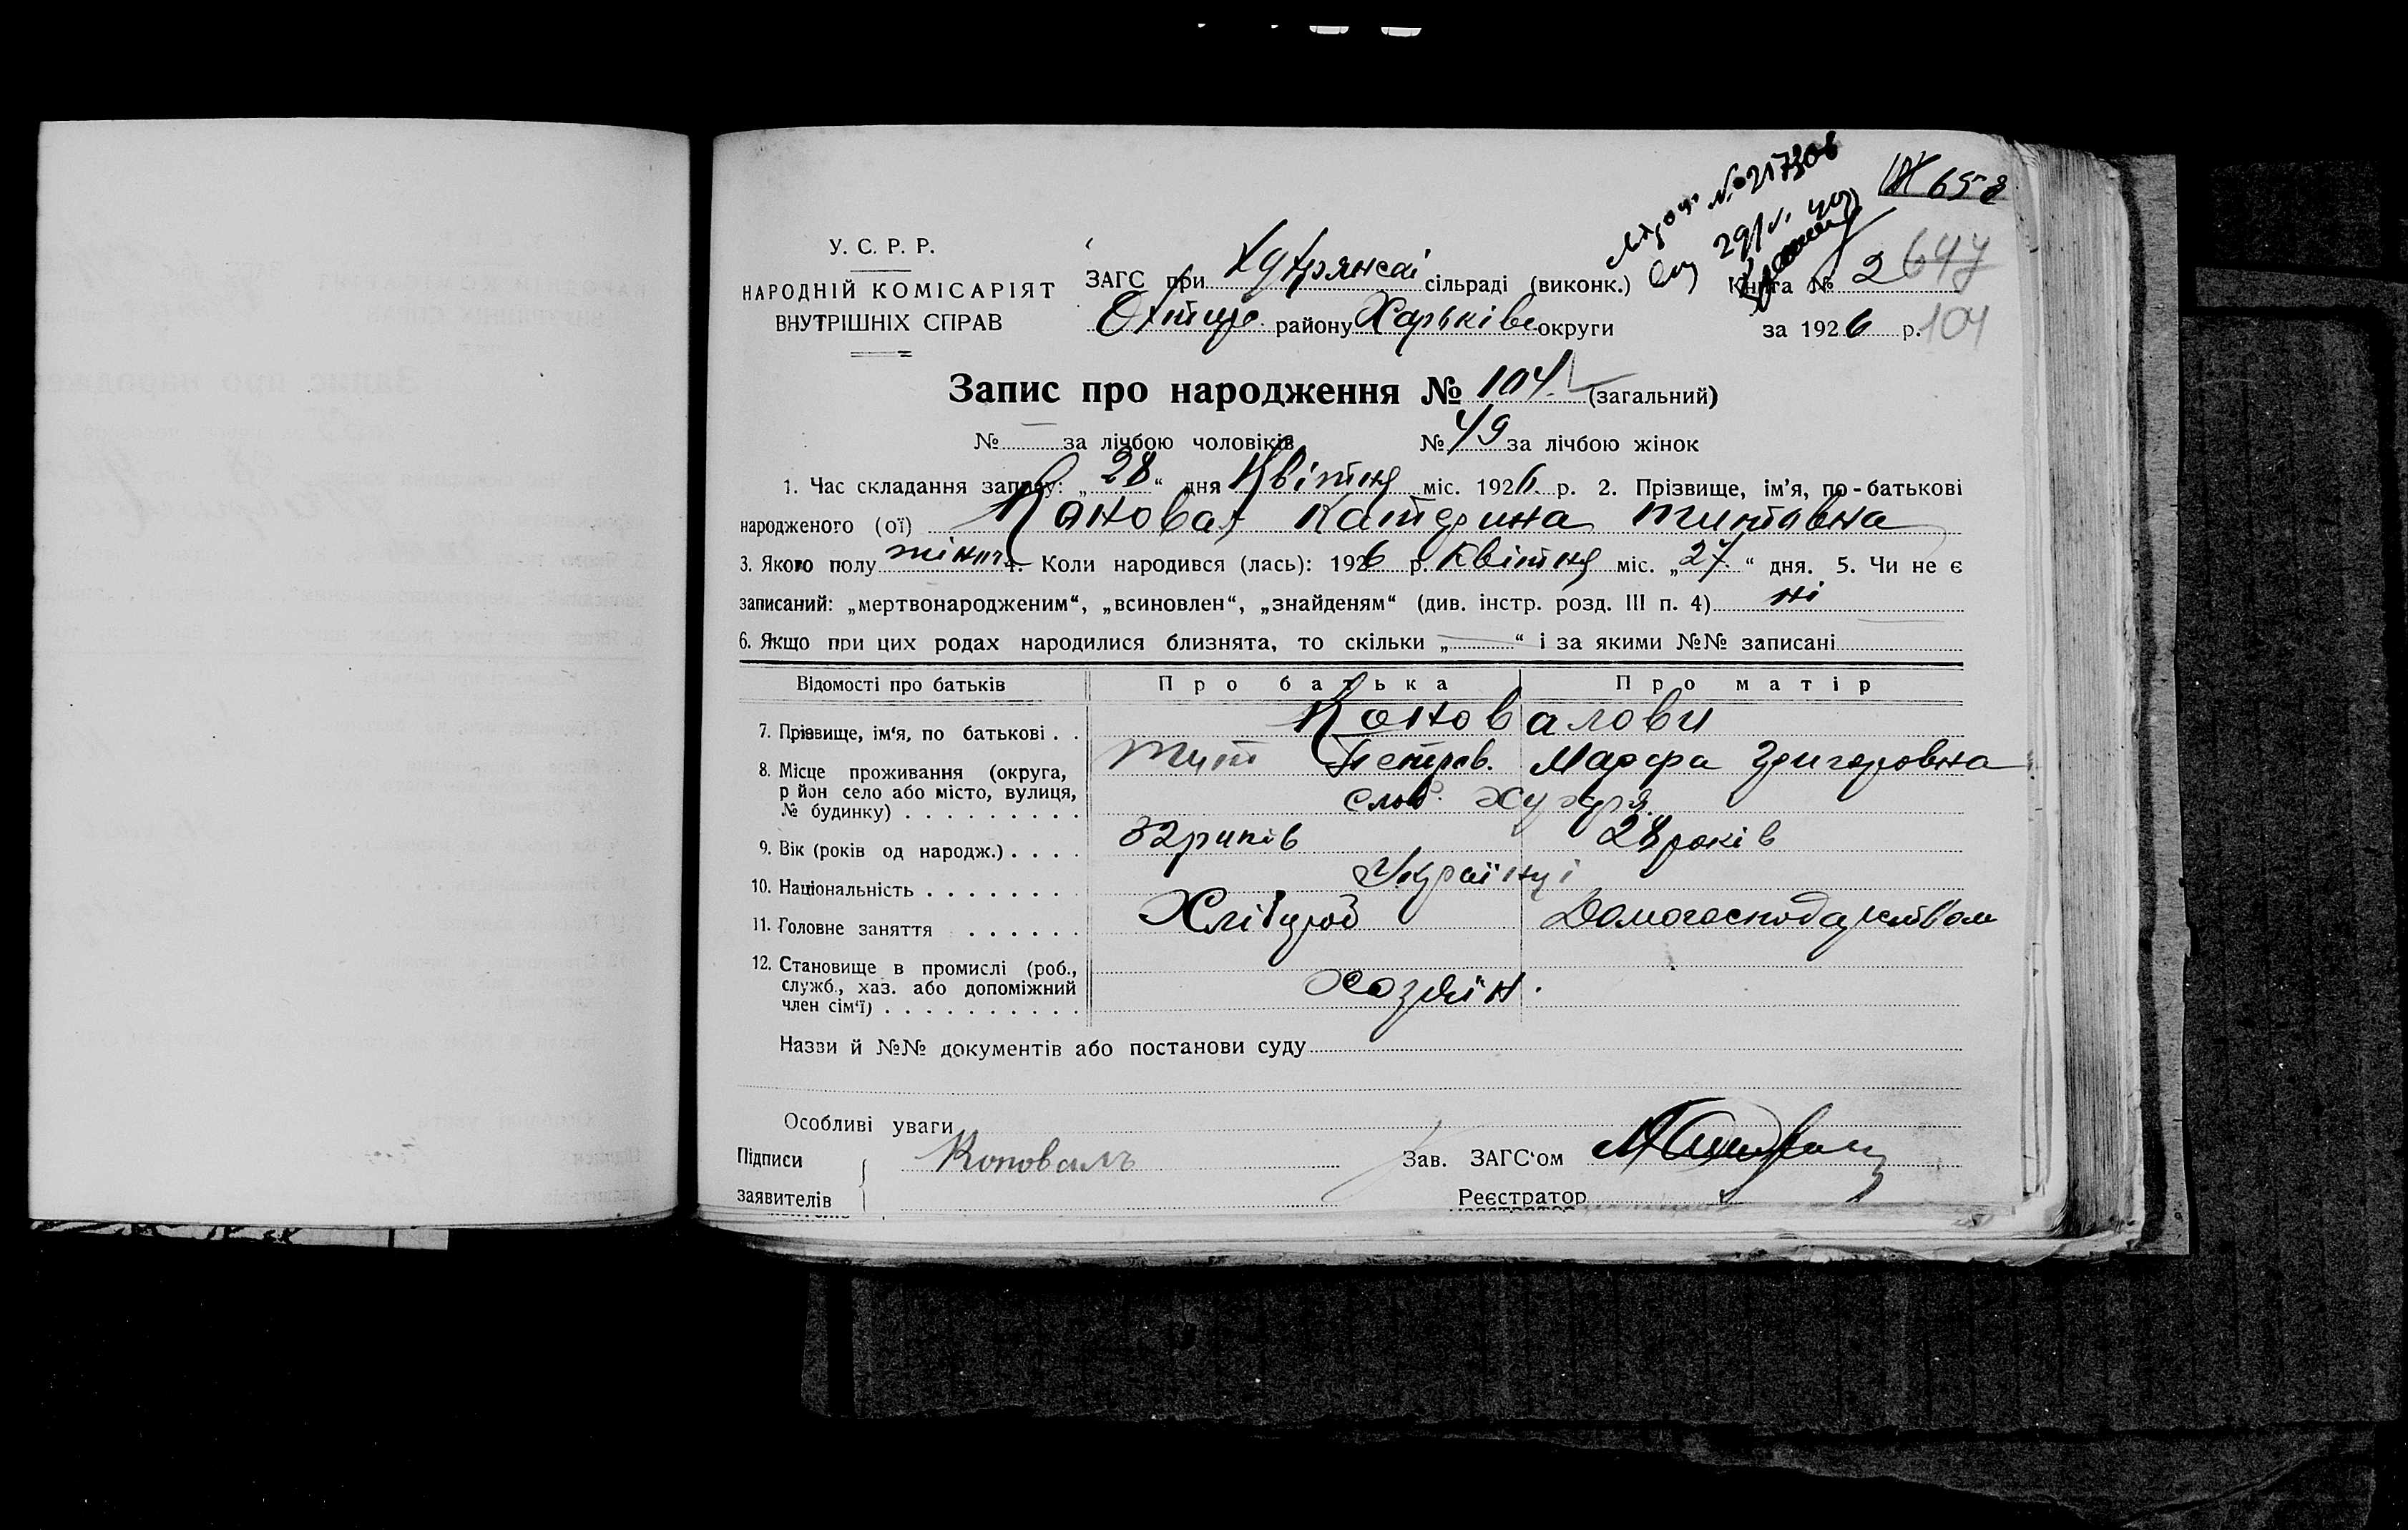 № 217308
658
У. С. Р. Р.
НАРОДНІЙ КОМІСАРІЯТ
ВНУТРІШНІХ СПРАВ
ЗАГС при сільраді (виконк.) Книга № 2
647
району Харьківс округи за 1926 р.
104
Запис про народження № 104 (загальний)
№ — за лічбою чоловіків № 49 за лічбою жінок
1. Час складання запису: „28“ дня Квітня міс. 1926 р. 2. Прізвище, ім’я, по-батькові
народженого (ої) Коновал Катерина Титовна
3. Якого полу жіноч. 4. Коли народився (лась): 1926 р. Квітня міс. „27“ дня. 5. Чи не є
записаний: „мертвонародженим“, „всиновлен“, „знайденям“ (див. інстр. розд. III п. 4) ні
6. Якщо при цих родах народилися близнята, то скільки „—“ і за якими №№ записані
Відомості про батьків Про батька Про матір
7. Прізвище, ім‘я, по батькові . . Коновалови
Тит Петров. Марфа Григоровна
8. Місце проживання (округа,
р йон село або місто, вулиця,
№ будинку) . . . . . . . . . слоб. Хухря
9. Вік (років од народж.) . . . . 32 років 28 років
10. Національність . . . . . . . Українці
11. Головне заняття . . . . . . Хлібороб Домогосподарством
12. Становище в промислі (роб.,
служб., хаз. або допоміжний
член сім‘ї) . . . . . . . . . . Хозяїн.
Назви й №№ документів або постанови суду
Особливі уваги
Підписи
заявителів
Коновалъ
Зав. ЗАГС‘ом
Реєстратор